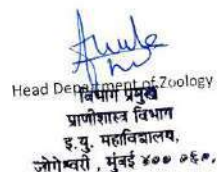 Head Department of Zoology
विभाग प्रमुख
प्राणीशास्त्र विभाग
इ.यु. महाविद्यालय,
जोगेश्वरी, मुंबई ४०० ०६०.